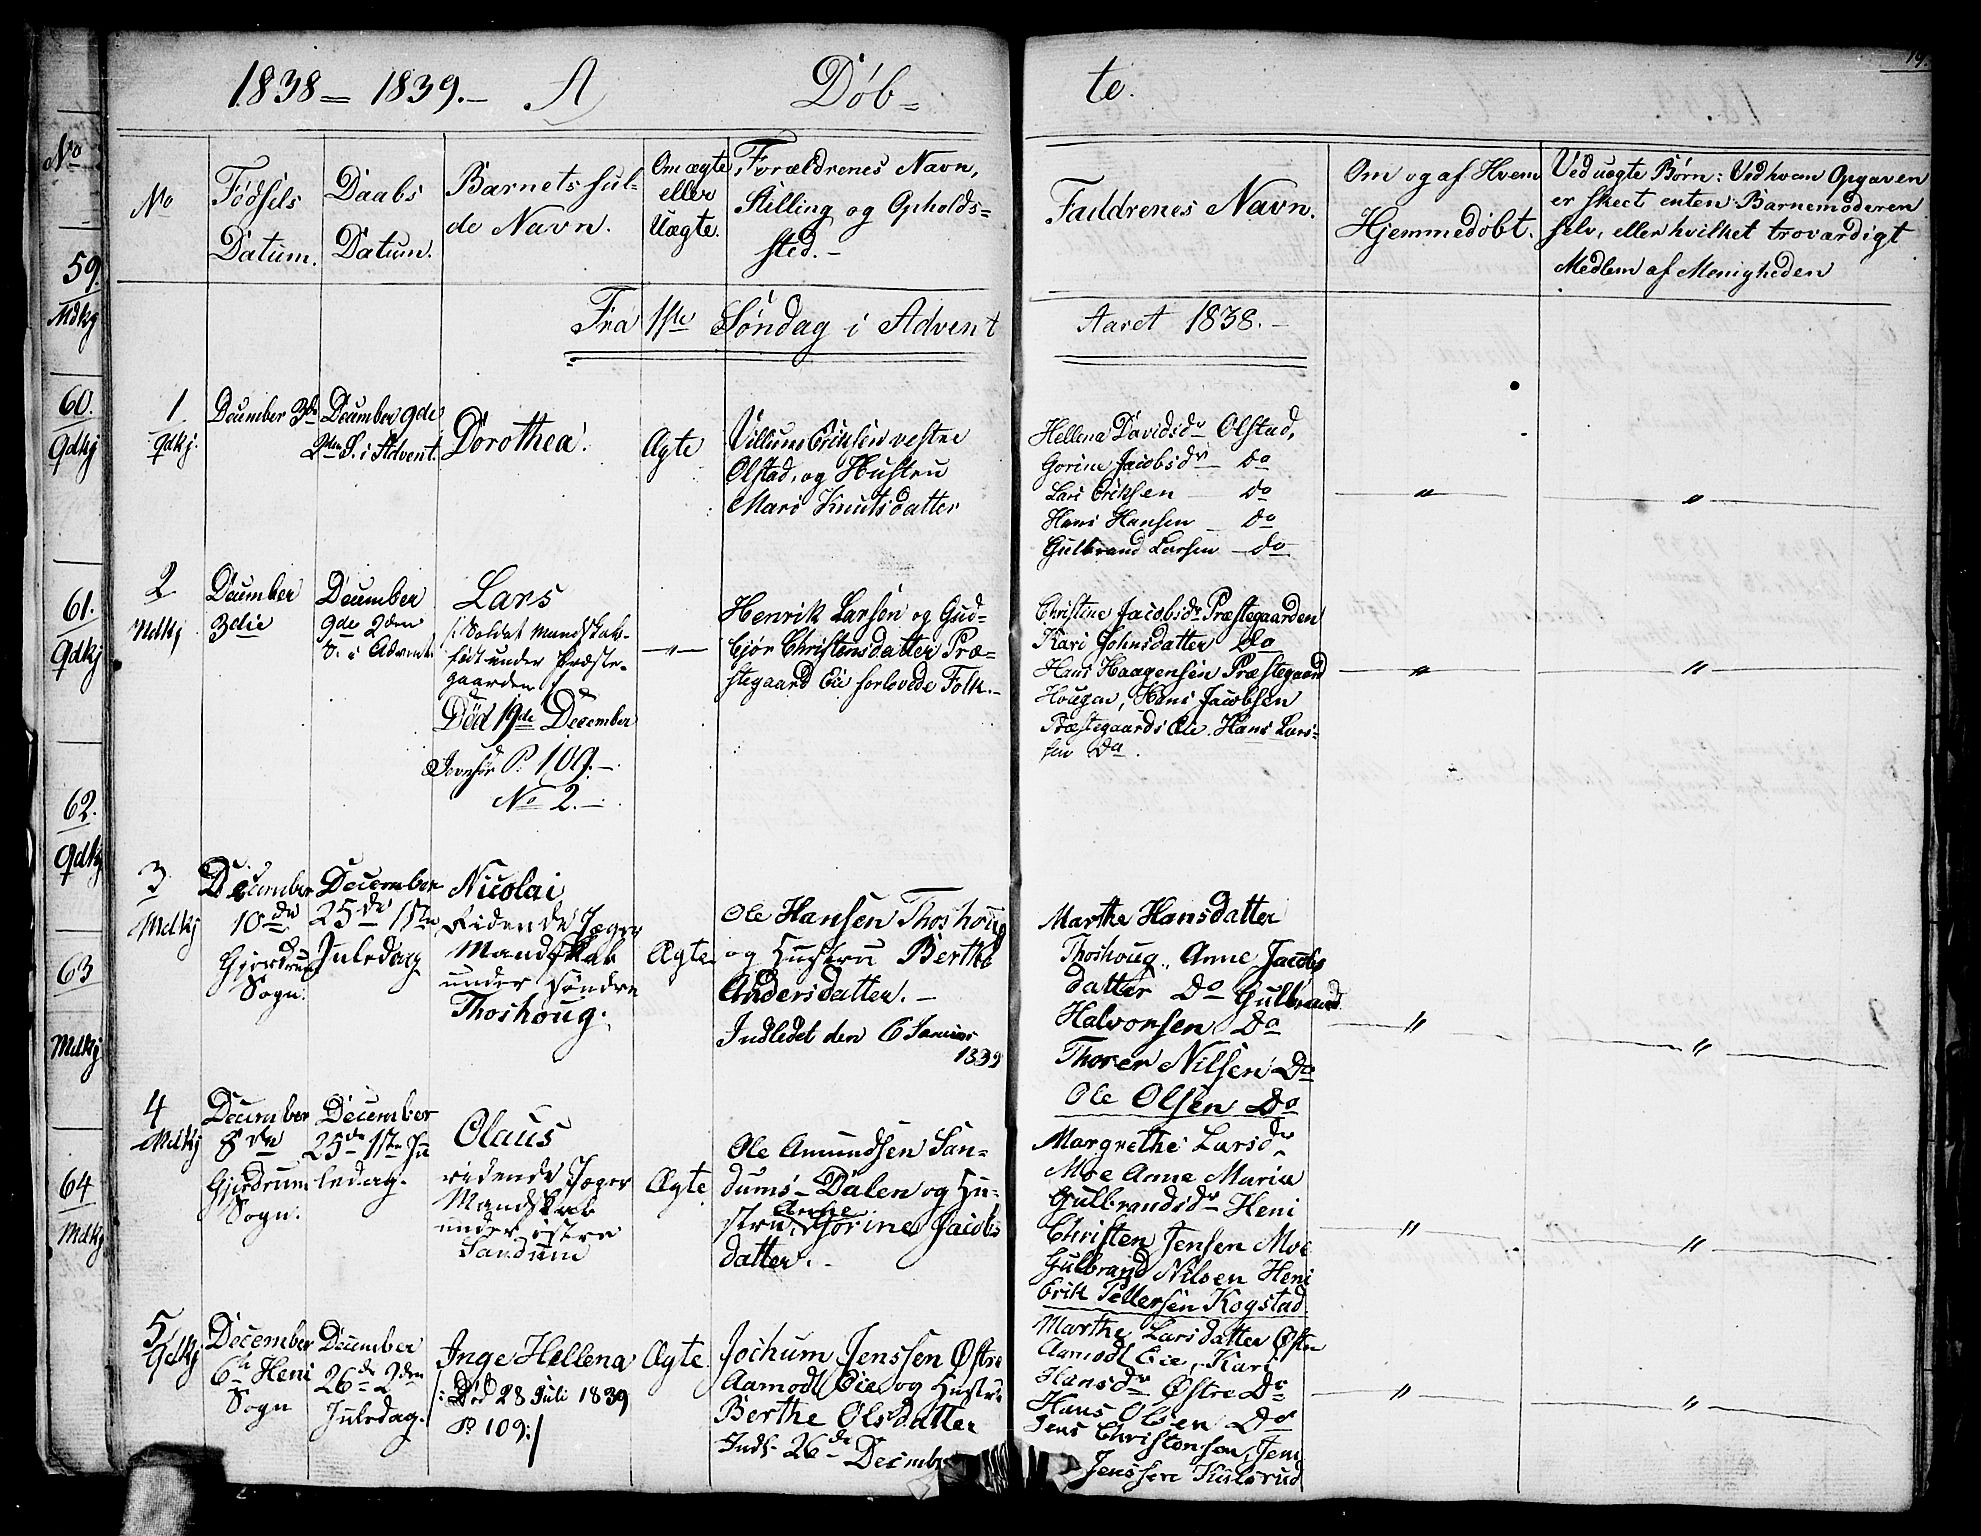 1838 = 1839. – A Døb=
te.
19.
No
59.
Mdkj
60.
Gdkj
61.
Gdkj
62.
Gdkj
63
Mdkj
64
Mdkj
No
Fødsels Datum.
Daabs Datum.
Barnets ful-
de Navn.
Om ægte
eller
Uægte.
Forældrenes Navn,
Stilling og Opholds=
sted. –
Faddrenes Navn.
Om og af Hvem
Hjemmedøbt.
Ved uægte Børn: Ved hvem Opgaven
er skeet enten Barnemoderen
selv, eller hvilket troværdigt
Medlem af Menigheden
Fra 1ste Søndag i Advent
Aaret 1838. –
1
Gdkj.
December 3die
December 9de
2den S. i Advent.
Dorothea.
Ægte
Villum Eriksen vestre
Olstad, og Hustru
Mari Knutsdatter
Hellena Davidsdr Olstad,
Gorine Jacobsdr – Do
Lars Eriksen – Do
Hans Hansen – Do
Gulbrand Larsen – do
2
Mdkj
December
3die
December
9de 2den
S. i Advent.
Lars
/: Soldat Mandskab
født under Præste-
gaarden
Død 19de December
Jevnfør P. 109. –
No 2. –
– " –
Henrik Larsen og Gud-
bjør Christensdatter Præ=
stegaard Eie forlovede Folk. –
Christine Jacobsdr Præstegaarden
Kari Johnsdatter Do
Hans Haagensen Præstegaard
Hougen, Hans Jacobsen
Præstegaards Eie. Hans Lars-
sen Do.
3
Mdkj
December
10de
Gjerdrum
Sogn.
December
25de 1ste
Juledag
Nicolai
Ridende Jæger
Mandskab
under søndre
Thoshoug.
Ægte
Ole Hansen Thoshoug
og Hustru Berthe
Andersdatter. –
Indledet den 6 Januar
1839
Marthe Hansdatter
Thoshoug, Anne Jacobs
datter Do Gulbrand
Halvorsen Do
Thorer Nilsen Do
Ole Olsen Do
4
Mdkj
December
8de
Gjerdrum
Sogn.
December
25de 1ste Ju
ledag.
Olaus
ridende Jæger
Mandskab
under østre
Sandum
Ægte
Ole Amundsen San=
dums – Dalen og Hu-
stru Anne Gorine Jacobs
datter. –
Margrethe Larsdr
Moe Anne Maria
Gulbrandsdr Heni
Christen Jensen Moe
Gulbrand Nilsen Heni
Erik Pettersen Kogstad
5
Gdkj
December
6te Heni
Sogn
December
26de 2den
Juledag.
Inge Hellena
/: Død 28 Juli 1839
P. 109 :/
Ægte.
Jochum Jenssen Østre
Aamodt Eie og Hustru
Berthe Olsdatter
Indl. 26de December
Marthe Larsdatter Østre
Aamodt Eie, Kari
Hansdr Østre Do
Hans Olsen Do
Jens Christensen, Jens
Jenssen Kulsrud